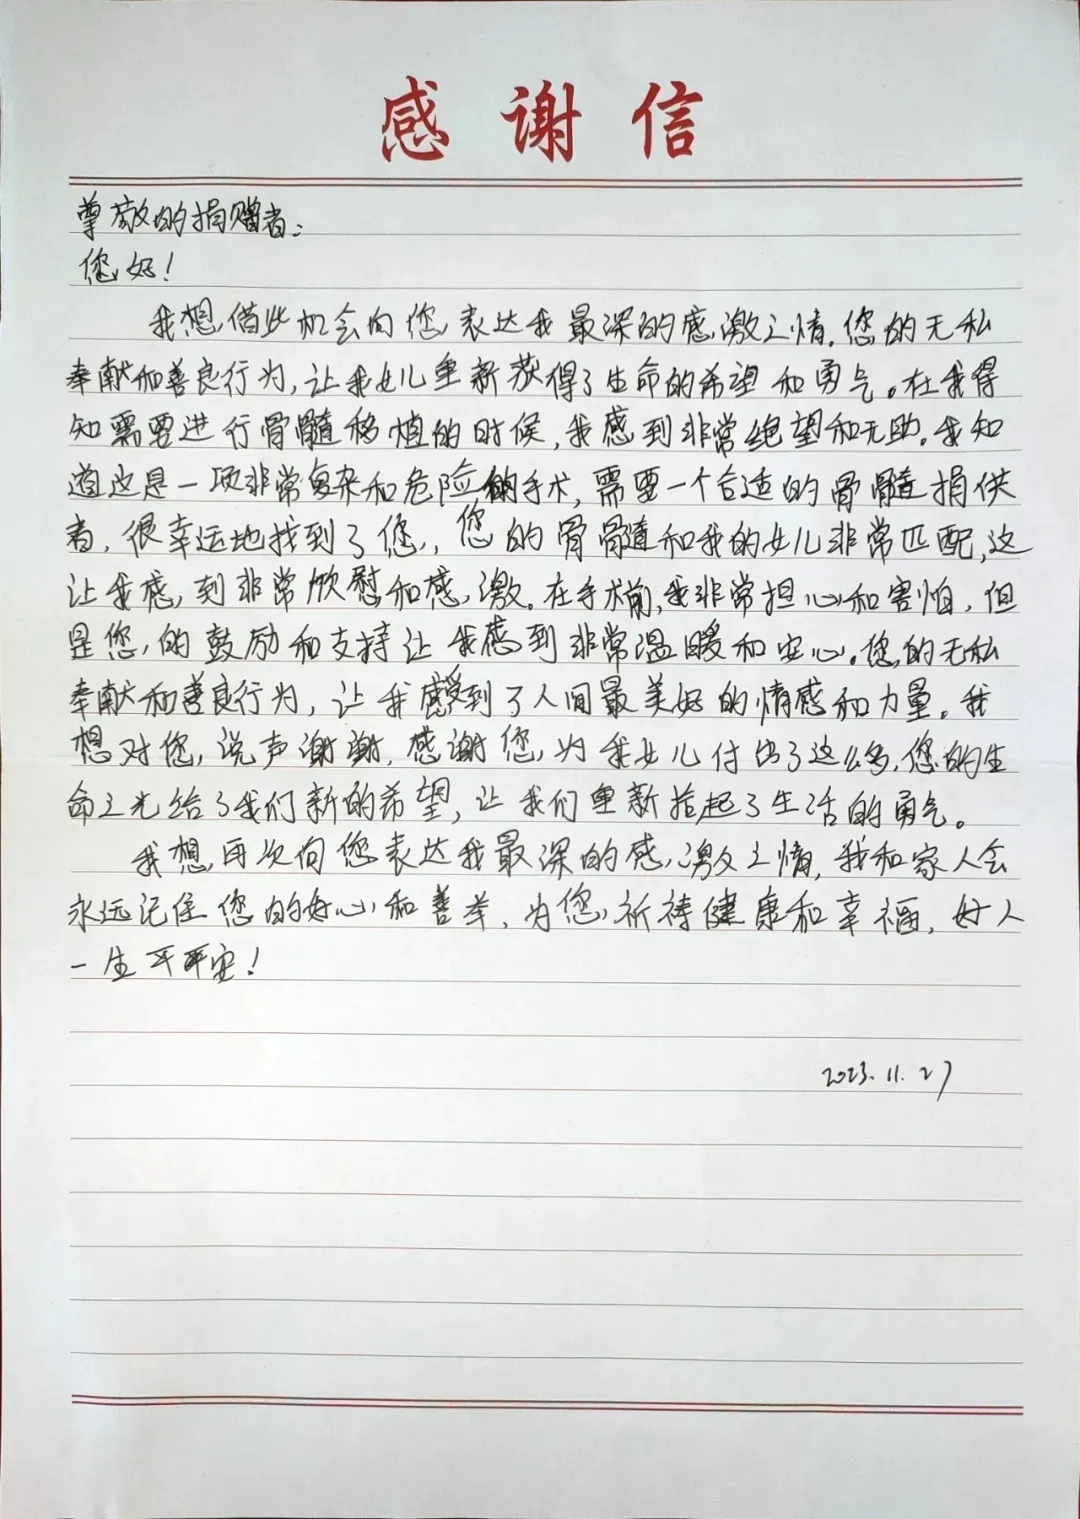 感谢信
尊敬的捐赠者：
您好！
我想借此机会向您表达我最深的感激之情，您的无私
奉献和善良行为，让我女儿重新获得了生命的希望和勇气。在我得
知需要进行骨髓移植的时候，我感到非常绝望和无助。我知
道这是一项非常复杂和危险的手术，需要一个合适的骨髓捐供
者，很幸运地找到了您，您的骨髓和我的女儿非常匹配，这
让我感到非常欣慰和感激。在手术前，我非常担心和害怕，但
是您的鼓励和支持让我感到非常温暖和安心。您的无私
奉献和善良行为，让我感受到了人间最美好的情感和力量。我
想对您说声谢谢，感谢您为我女儿付出了这么多，您的生
命之光给了我们新的希望，让我们重新拾起了生活的勇气。
我想再次向您表达我最深的感激之情，我和家人会
永远记住您的好心和善举，为您祈祷健康和幸福，好人
一生平平安！
2023.11.27